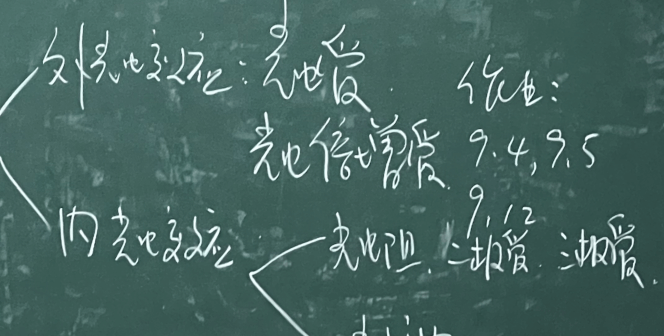 外光电效应：光电管
作业：
光电倍增管
9.4, 9.5
9.12
内光电效应
光电阻、二极管、三极管